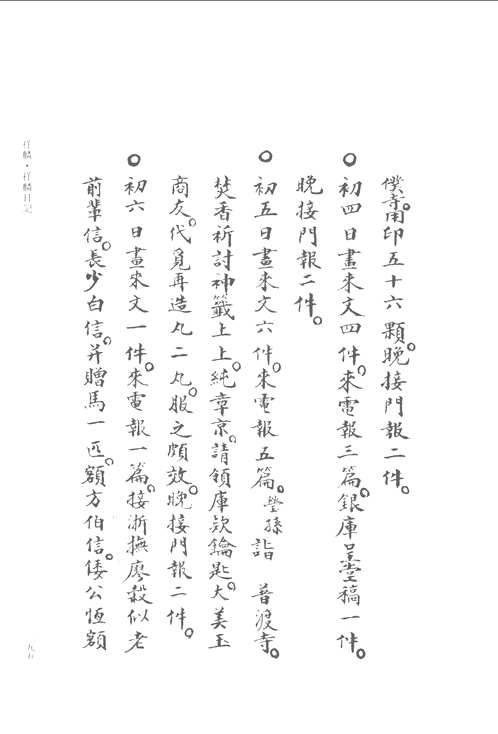 僕寺用印五十六顆。晚接門報二件。
○初四日畫來文四件。來電報三篇。銀庫呈堂稿一件。
晚接門報二件。
○初五日畫來文六件。來電報五篇。瑩孫詣 普渡寺。
焚香祈討神籤上上。純章京。請領庫欵鑰匙。大美玉
商友。代覓再造丸二丸。服之頗效。晚接門報二件。
○初六日畫來文一件。來電報一篇。接浙撫廖穀似老
前輩信。長少白信。并贈馬一匹。額方伯信。倭公恆額
祥麟·祥麟日记